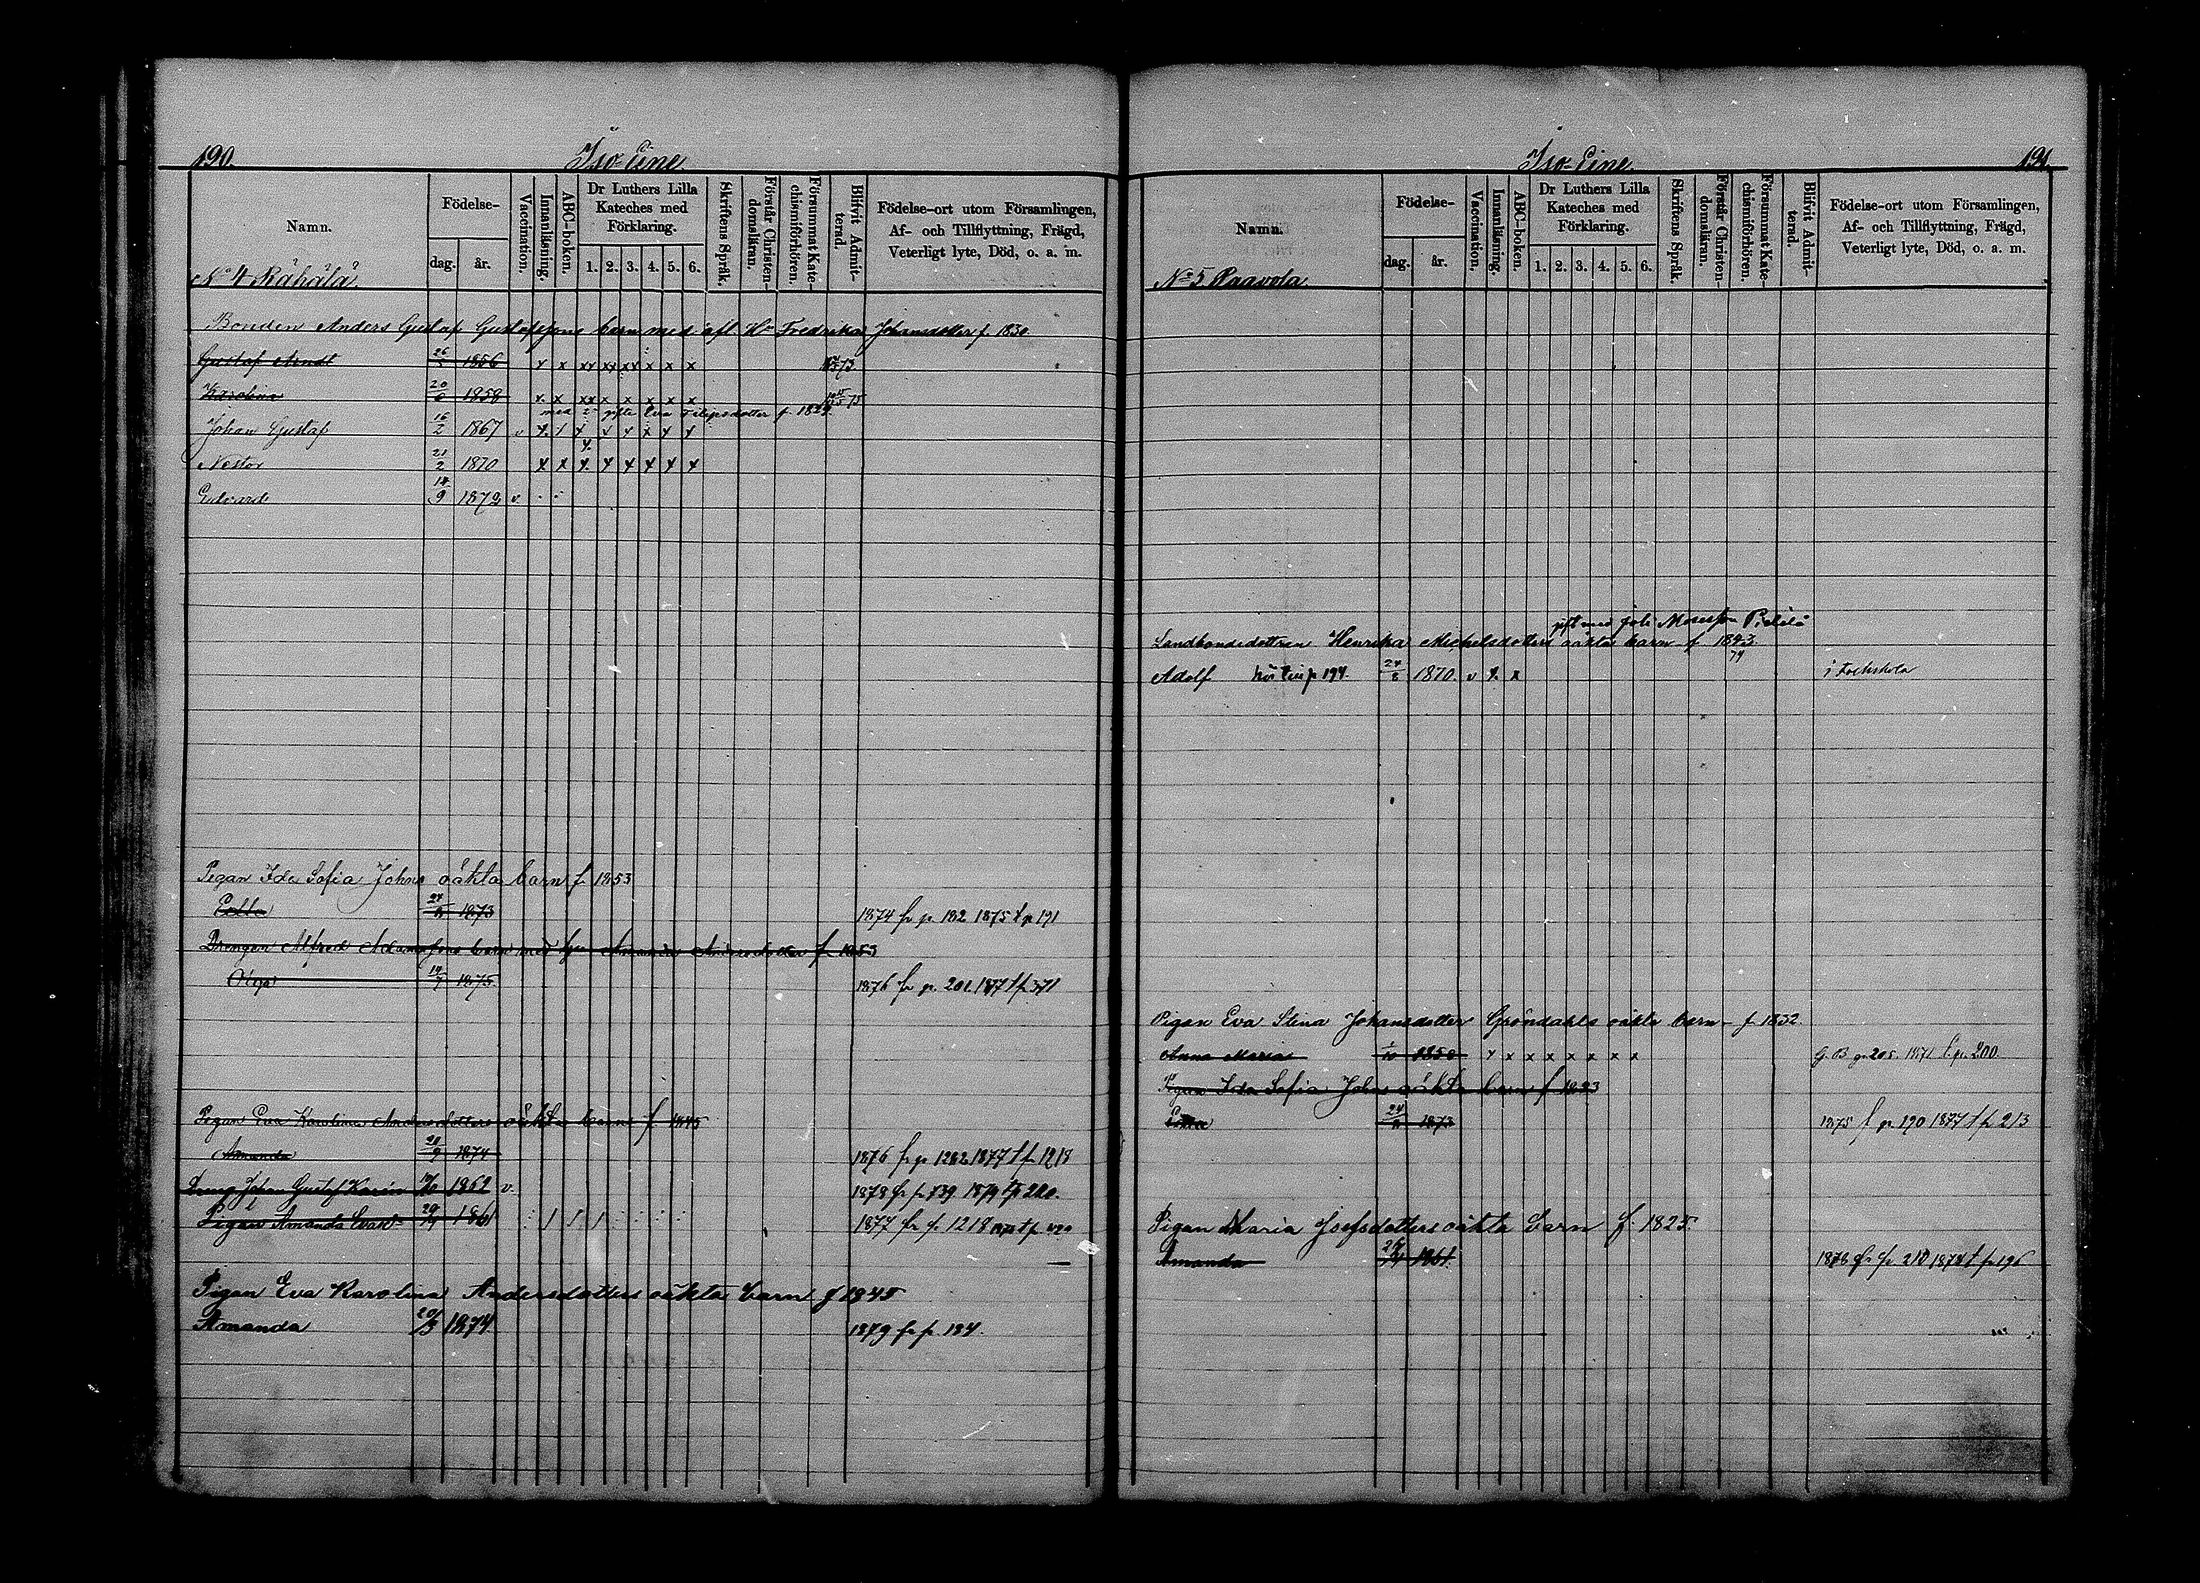 190. Iso-Eine.
Namn. Födelse- dag. år. Vaccination. Innanläsning. ABC-boken. Dr Luthers Lilla Kateches med Förklaring. 1. 2. 3. 4. 5. 6. Skriftens Språk. Förstår Christendomsläran. Försummat Katechismiförhören. Blifvit Admitterad. Födelse-ort utom Församlingen, Af- och Tillflyttning, Frägd, Veterligt lyte, Död, o. a. m.
No 4
Bonden Anders Gustaf Gustafssons barn med afl. Hu Fredrika Johansdotter f. 1830
Gustaf 26 1856 x x xx xx xx x x x 73
Karolina 20/6 1858 x. x xx x x x x x 75
med 2 gifte Eva Filipsdotter f. 1829
Johan Gustaf 16/2 1867 v
Nestor 21/2 1870 x x x x x x x x
Edvard 14/9 1872 v.
Pigan Ida Sofia Johns oäkta barn f. 1853
24 1873 1874 fr p. 182 1875 t p 191
Drengen Alfred Adamssons barn med hu Amanda Andersdotter f. 1853
Olga 14/7 1875 1876 fr p. 201. 1877 t p 371
Pigan Eva Karolina Andersdotters oäkta barn f. 1845
Amanda 20/9 1874 1876 fr p 1282 1877 t p. 1218
Dreng Johan Gustaf 1862 v. 1878 fr p. 739 1879 t p 200.
Pigan Amanda 29 1861 1877 fr p. 1218
Pigan Eva Karolina Andersdotters oäkta barn f 1845
Amanda 20/9 1874 1879 fr p. 184.
Iso-Eine. 191.
Namn. Födelse- dag. år. Vaccination. Innanläsning. ABC-boken. Dr Luthers Lilla Kateches med Förklaring. 1. 2. 3. 4. 5. 6. Skriftens Språk. Förstår Christendomsläran. Försummat Katechismiförhören. Blifvit Admitterad. Födelse-ort utom Församlingen, Af- och Tillflyttning, Frägd, Veterligt lyte, Död, o. a. m.
No 5 Paavola
gift med Joh. Mosesson
Landbondedottren Henrika Michelsdotters oäkta barn f. 1843
Adolf p 194. 24/8 1870. v x. x i Folkskola
Pigan Eva Stina Johansdotter Gröndahls oäkta barn f. 1832.
Anna Maria 1850 x x x x x x x x p. 205. 1871 t p. 200
Pigan Ida Sofia Johns oäkta barn f
24 1873 1875 f p 190 1877 t p. 213
Pigan Maria Josefsdotters oäkta barn f. 1825.
Amanda 1861 1878 fr p. 210 1878 t p 196